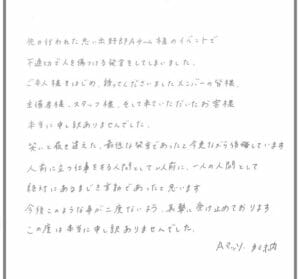 先日行われた思い出野郎Aチーム様のイベントで
不適切で人を傷つける発言をしてしまいました。
ご本人様をはじめ、待ってくださいましたメンバーの皆様、
主催者様、スタッフ様、そして来ていただいたお客様
本当に申し訳ありませんでした。
笑いと履き違えた、最低な発言であったと今更ながら後悔しています
人前に立つ仕事をする人間として以前に、一人の人間として
絶対にあるまじき言動であったと思います
今後このような事が二度ないよう、真摯に受け止めております
この度は本当に申し訳ありませんでした。
Aマッソ 加納